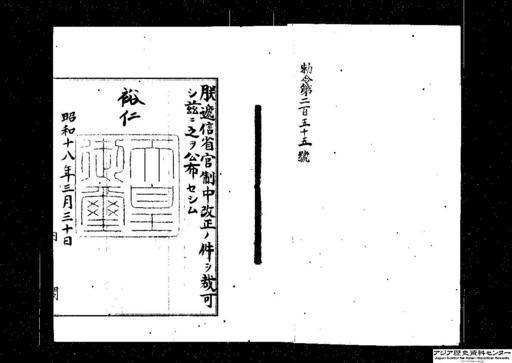 勅令第二百五十五號
朕遞信省官制中改正ノ件ヲ裁可
シ玆ニ之ヲ公布セシム
裕仁
天皇御璽
昭和十八年三月三十日
アジア歴史資料センター
Japan Center for Asian Historical Records